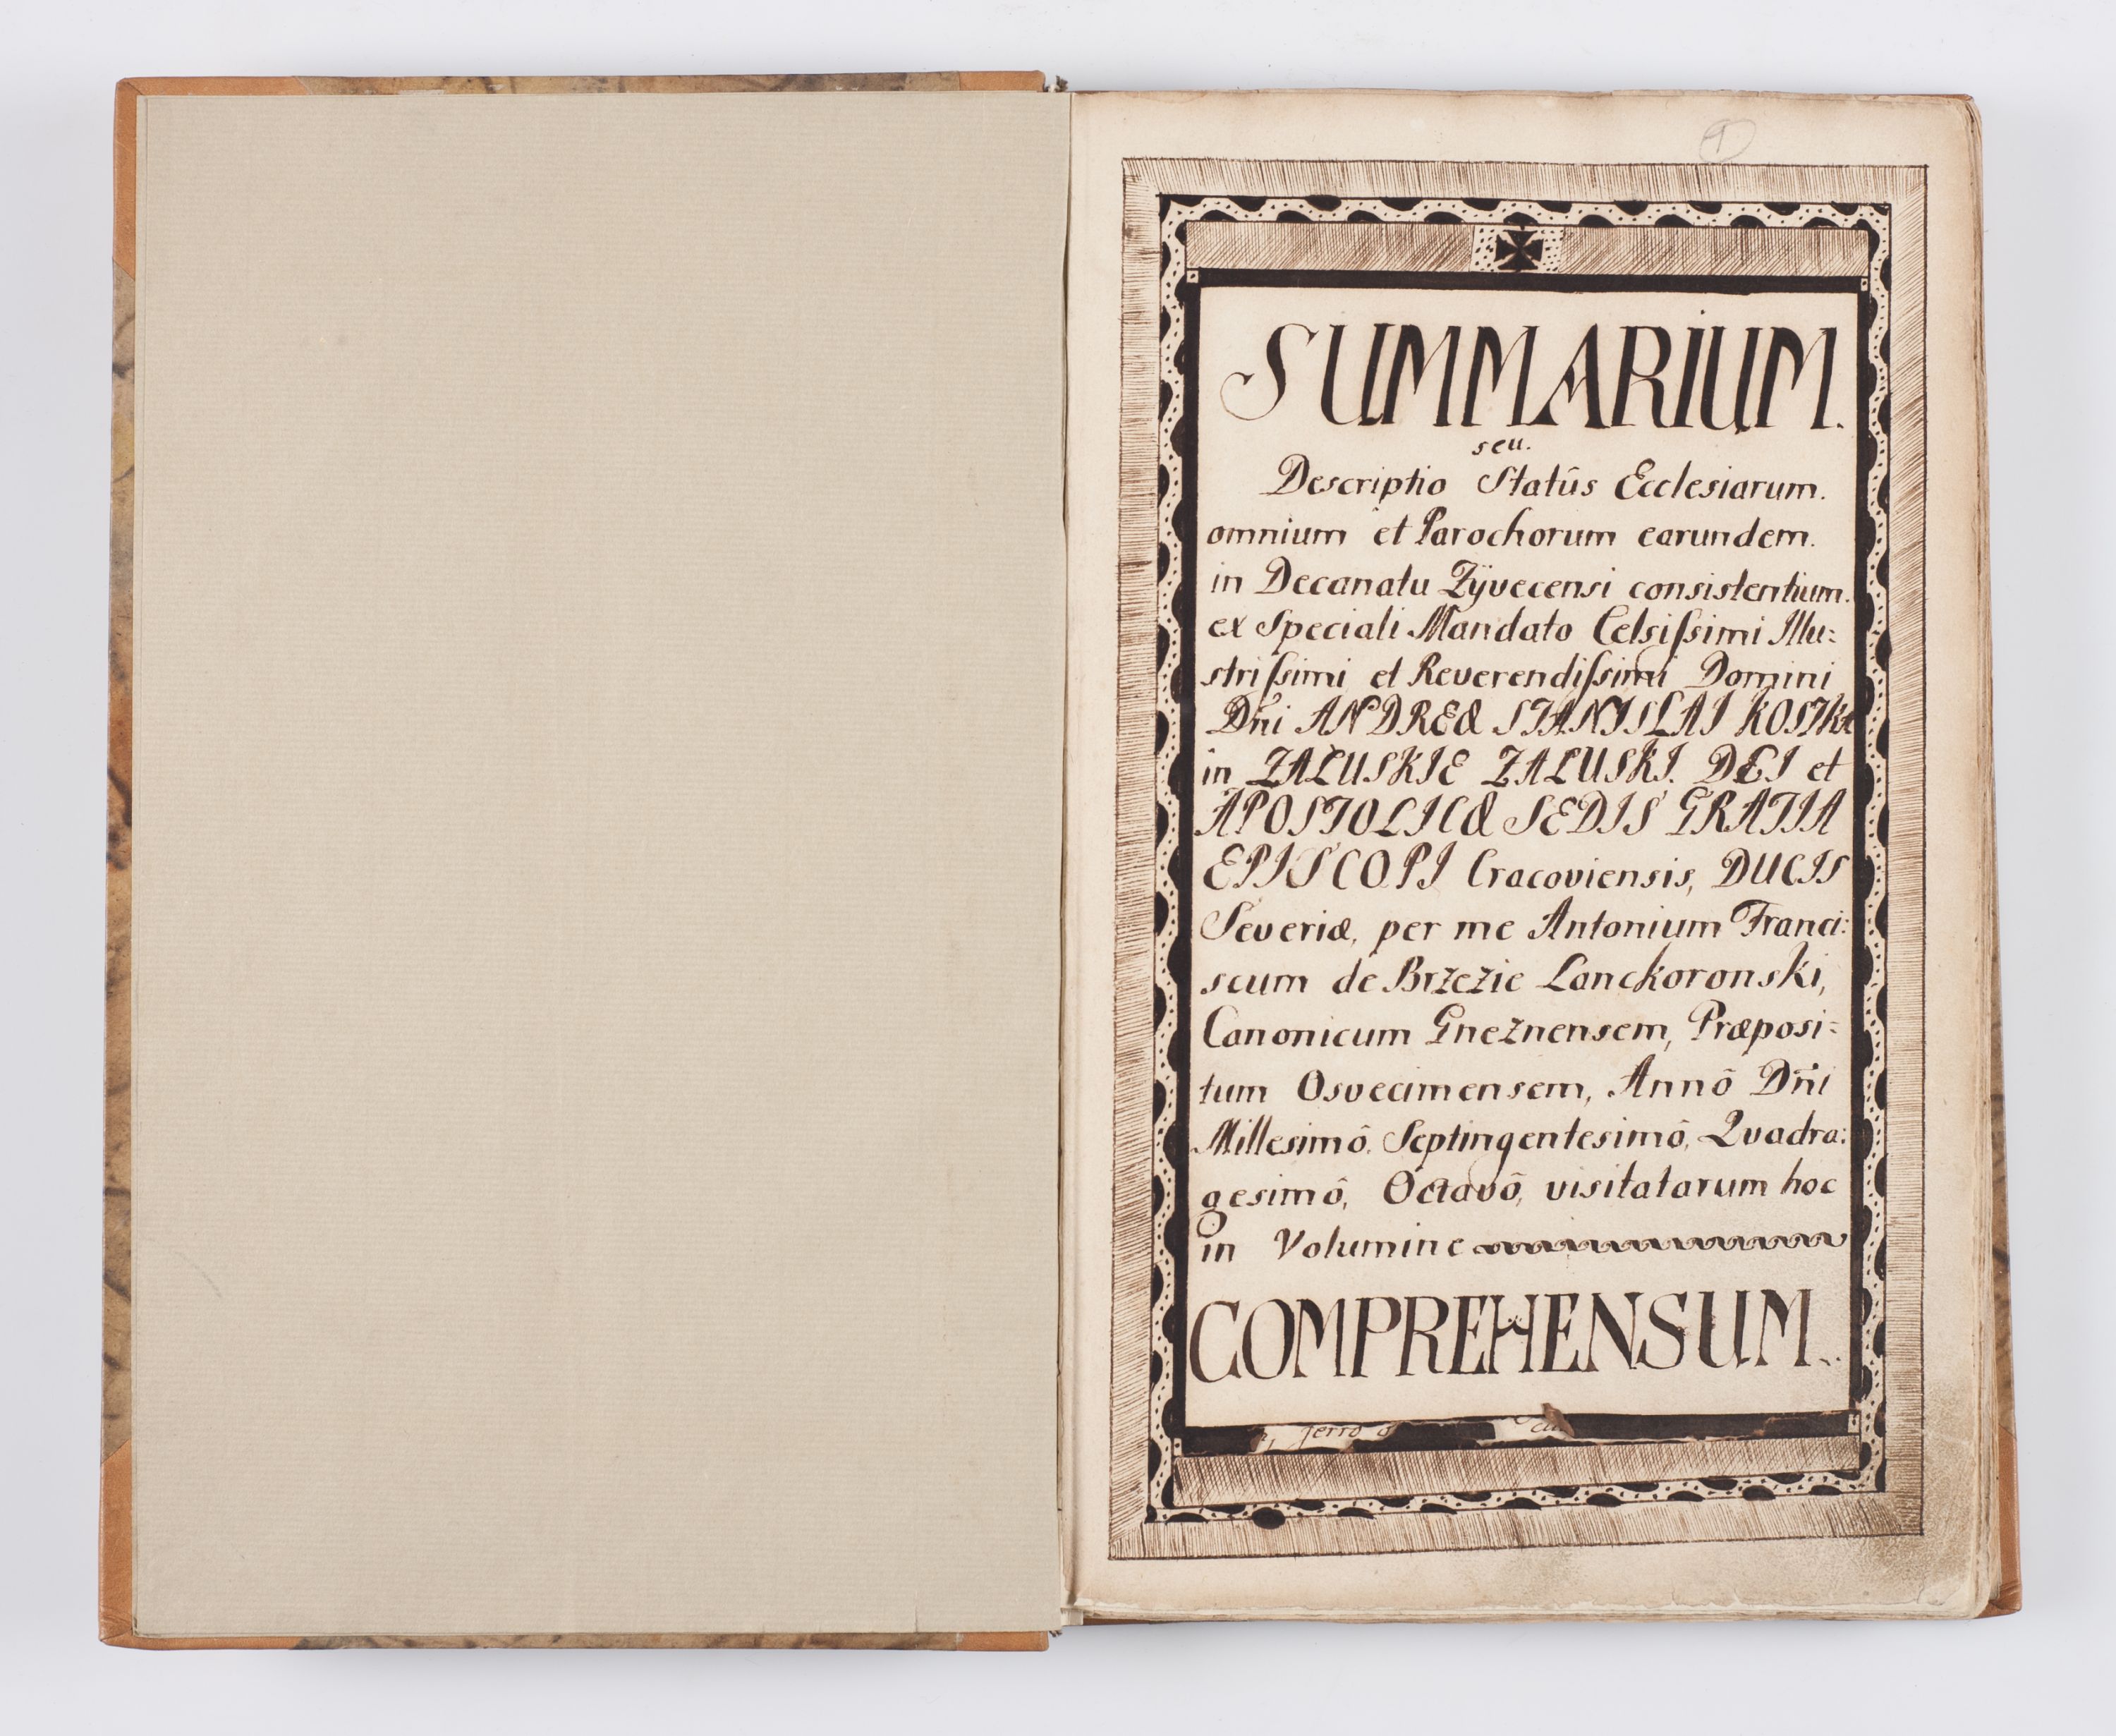 1
SUMMARIUM.
seu.
Descriptio Statûs Ecclesiarum.
omnium et Parochorum earundem.
in Decanatu Zÿvecensi consistentium.
ex Speciali Mandato Celsiſsimi Illu=
striſsimi et Reverendiſsimi Domini
Dñi ANDREÆ STANISLAI KOSTKA
in ZAŁUSKIE ZAŁUSKI. DEI et
APOSTOLICÆ SEDIS GRATIA
EPISCOPI Cracoviensis, DUCIS
Severiæ, per me Antonium Franci:
scum de Brzezie Lanckoronski,
Canonicum Gneznensem, Præposi=
tum Osvecimensem, Annô Dñi
Millesimô. Septingentesimô, Quadra:
gesimô, Octavô, visitatarum hoc
in Volumine
COMPREHENSUM.